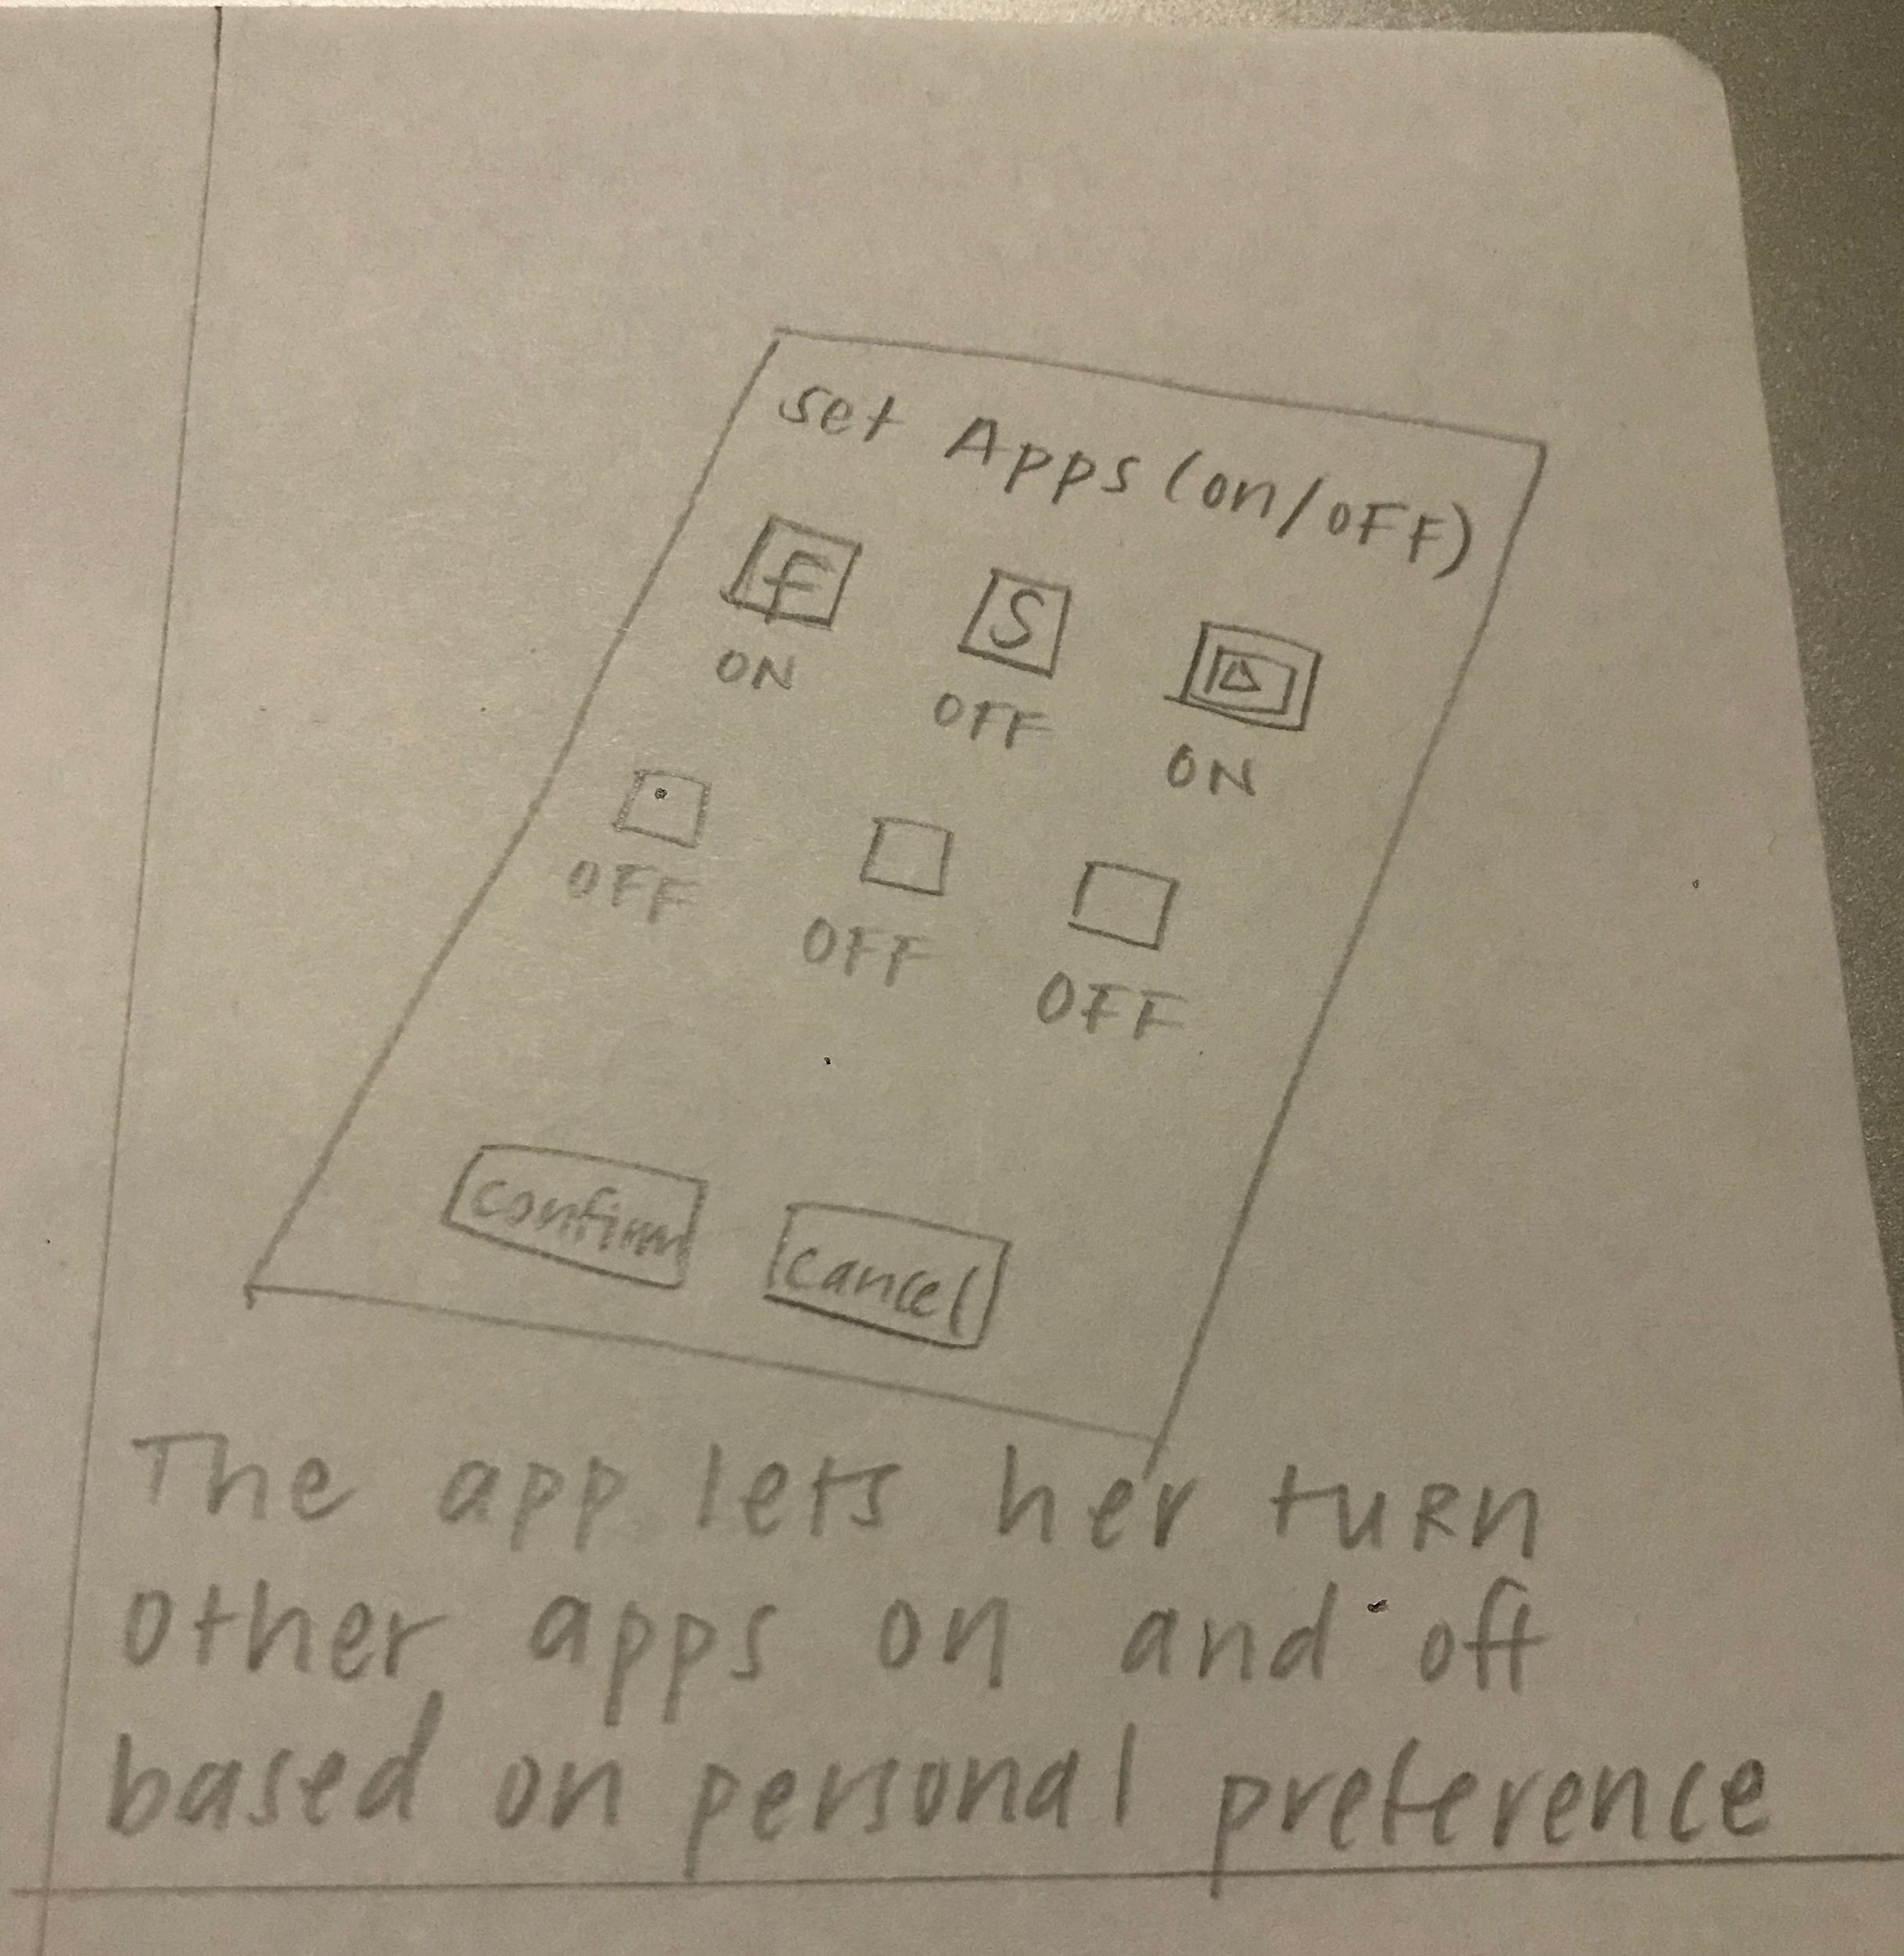 set Apps (on/OFF)
f S
ON OFF ON
OFF OFF OFF
confirm cancel
The app lets her turn
other apps on and off
based on personal preference